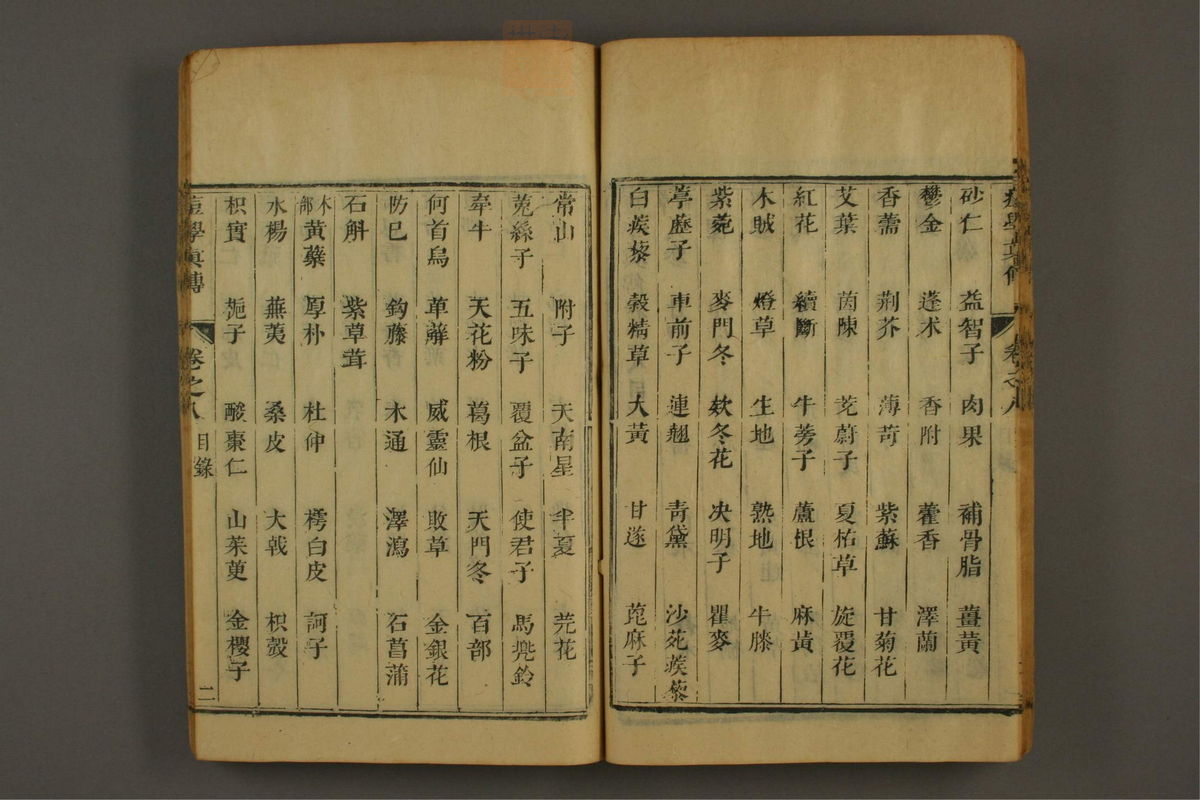 砂仁 益智子 肉果 補骨脂 薑黃
鬱金 蓬术 香附 藿香 澤蘭
香薷 荆芥 薄荷 紫蘇 甘菊花
艾葉 茵陳 茺蔚子 夏枯草 旋覆花
紅花 續斷 牛蒡子 蘆根 麻黃
木賊 燈草 生地 熟地 牛膝
紫菀 麥門冬 欵冬花 决明子 瞿麥
葶藶子 車前子 連翹 青黛 沙苑蒺藜
白蒺藜 穀精草 大黃 甘遂 萆麻子
常山 附子 天南星 半夏 芫花
菟絲子 五味子 覆盆子 使君子 馬兠鈴
牽牛 天花粉 葛根 天門冬 百部
何首烏 萆薢 威靈仙 敗草 金銀花
防巳 鈎藤 木通 澤瀉 石菖蒲
石斛 紫草茸
木部 黃蘗 厚朴 杜仲 樗白皮 訶子
水楊 蕪荑 桑皮 大戟 枳殼
枳實 梔子 酸棗仁 山茱萸 金櫻子
痘學真傳 卷之八 目錄 二